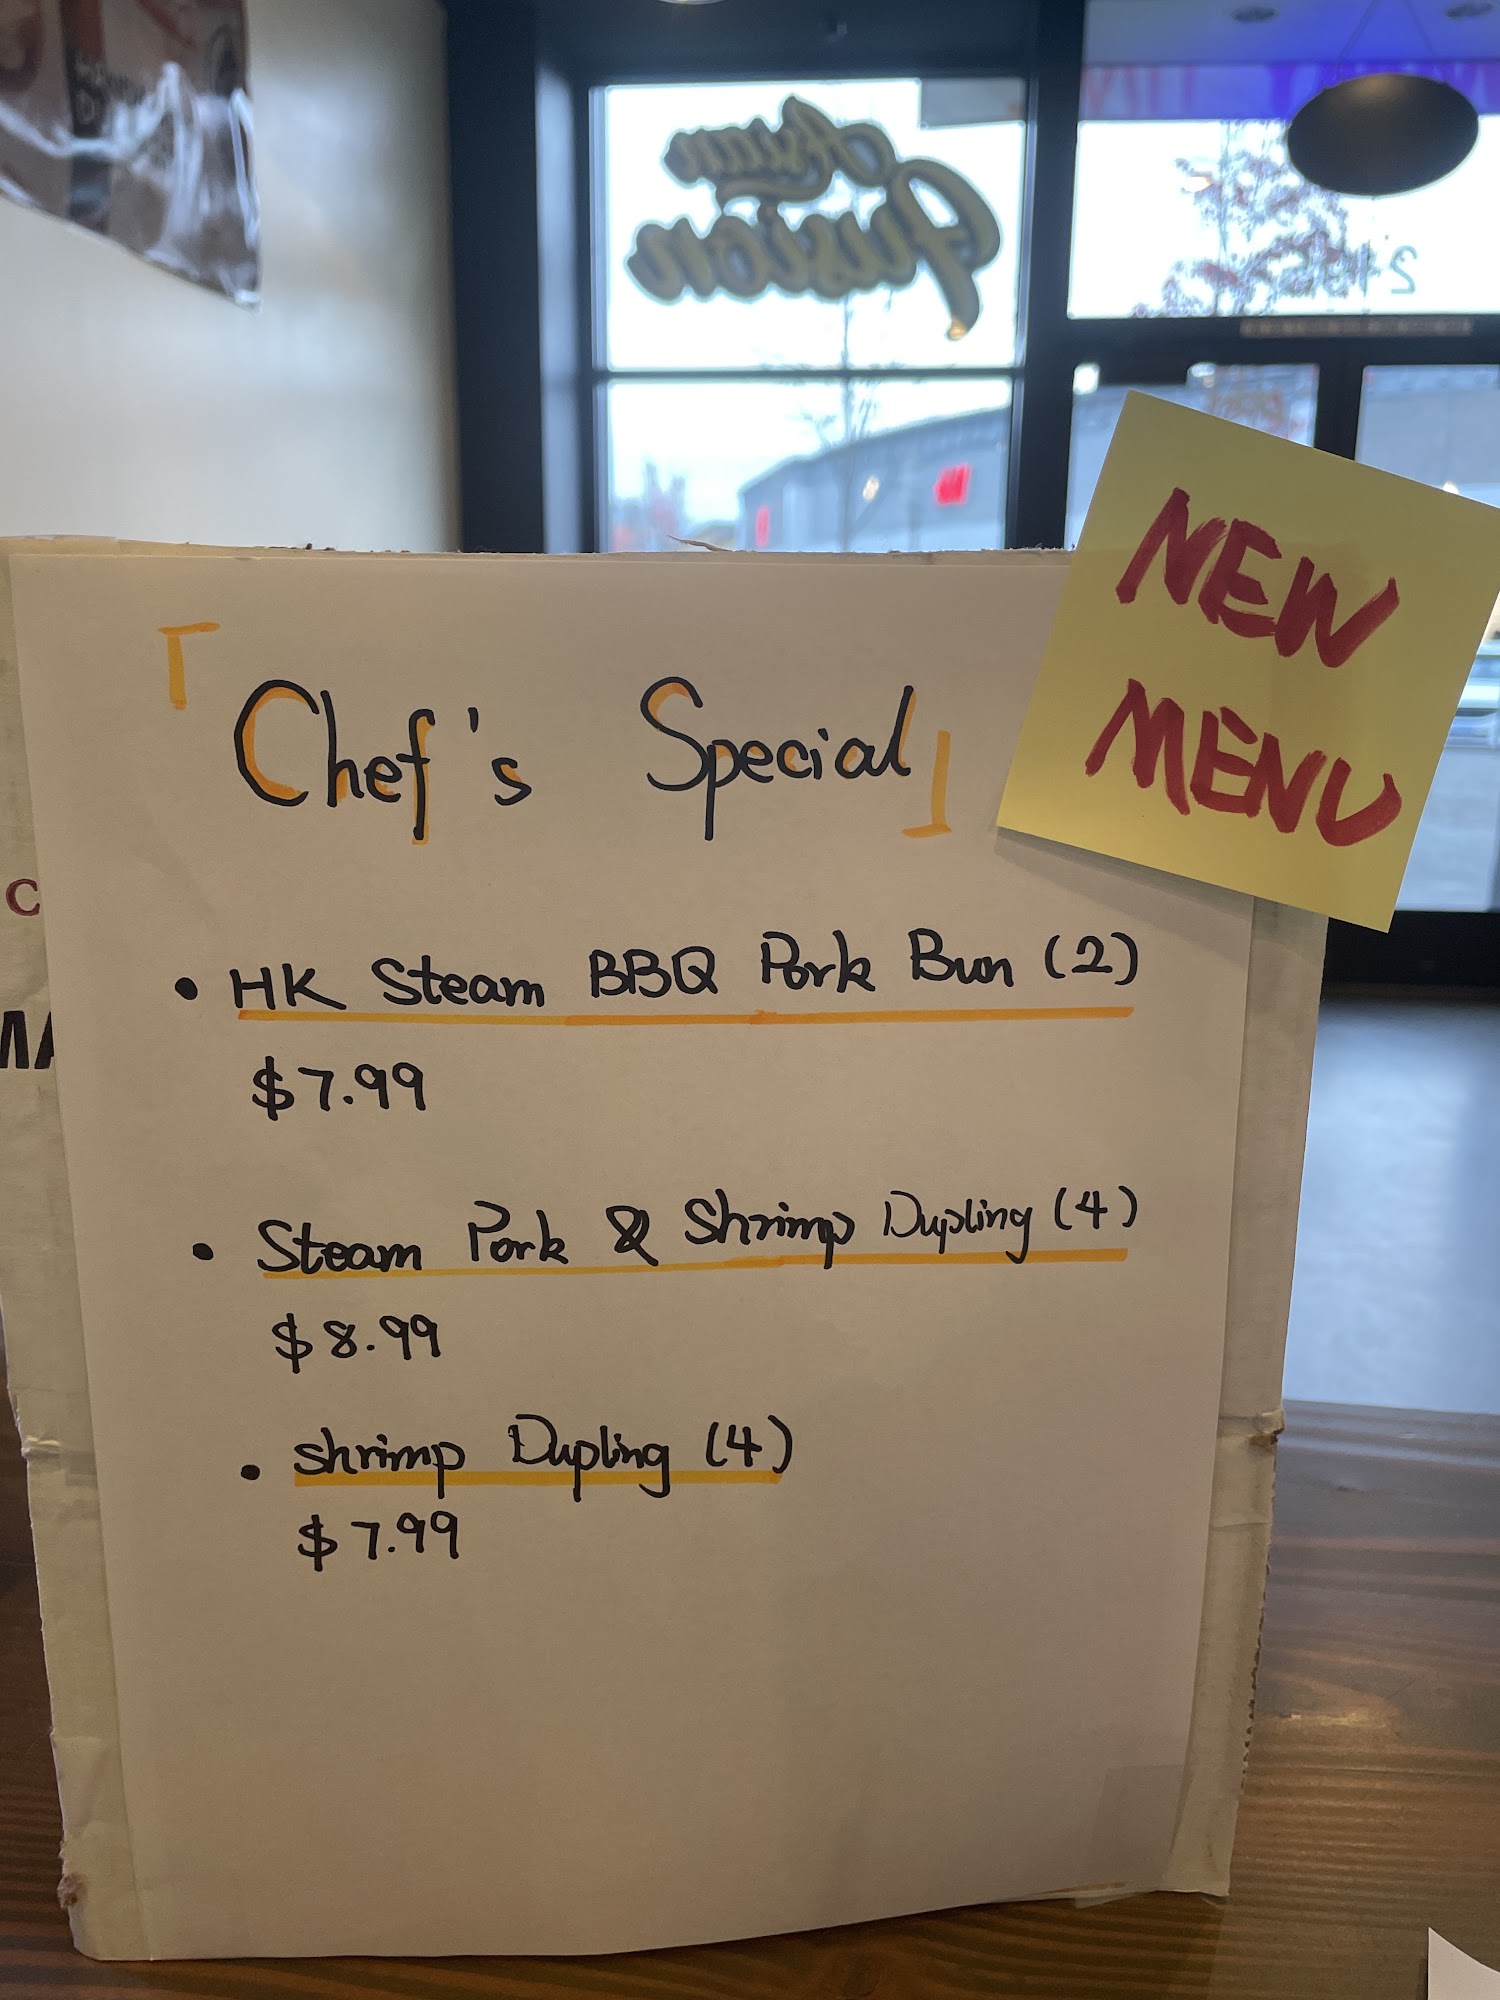 Asian
Fusion
NEW
MENU
「Chef's Special」
• HK Steam BBQ Pork Bun (2)
$7.99
• Steam Pork & Shrimp Dupling (4)
$8.99
• shrimp Dupling (4)
$7.99
C
MA